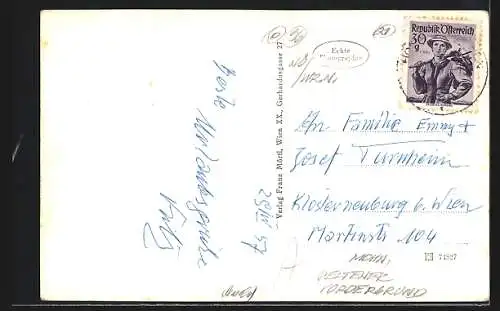 Beste
Urlaubsgrüße
Fritz
29/VII 57
Verlag Franz Mörtl, Wien XX., Gerhardusgasse 27
Echte
Photographie
Republik Österreich
30
g
An Familie Emmy +
Josef Turnheim
Klosterneuburg b. Wien
Martinstr 104
MOHN,
SELTENER
VORDERGRUND